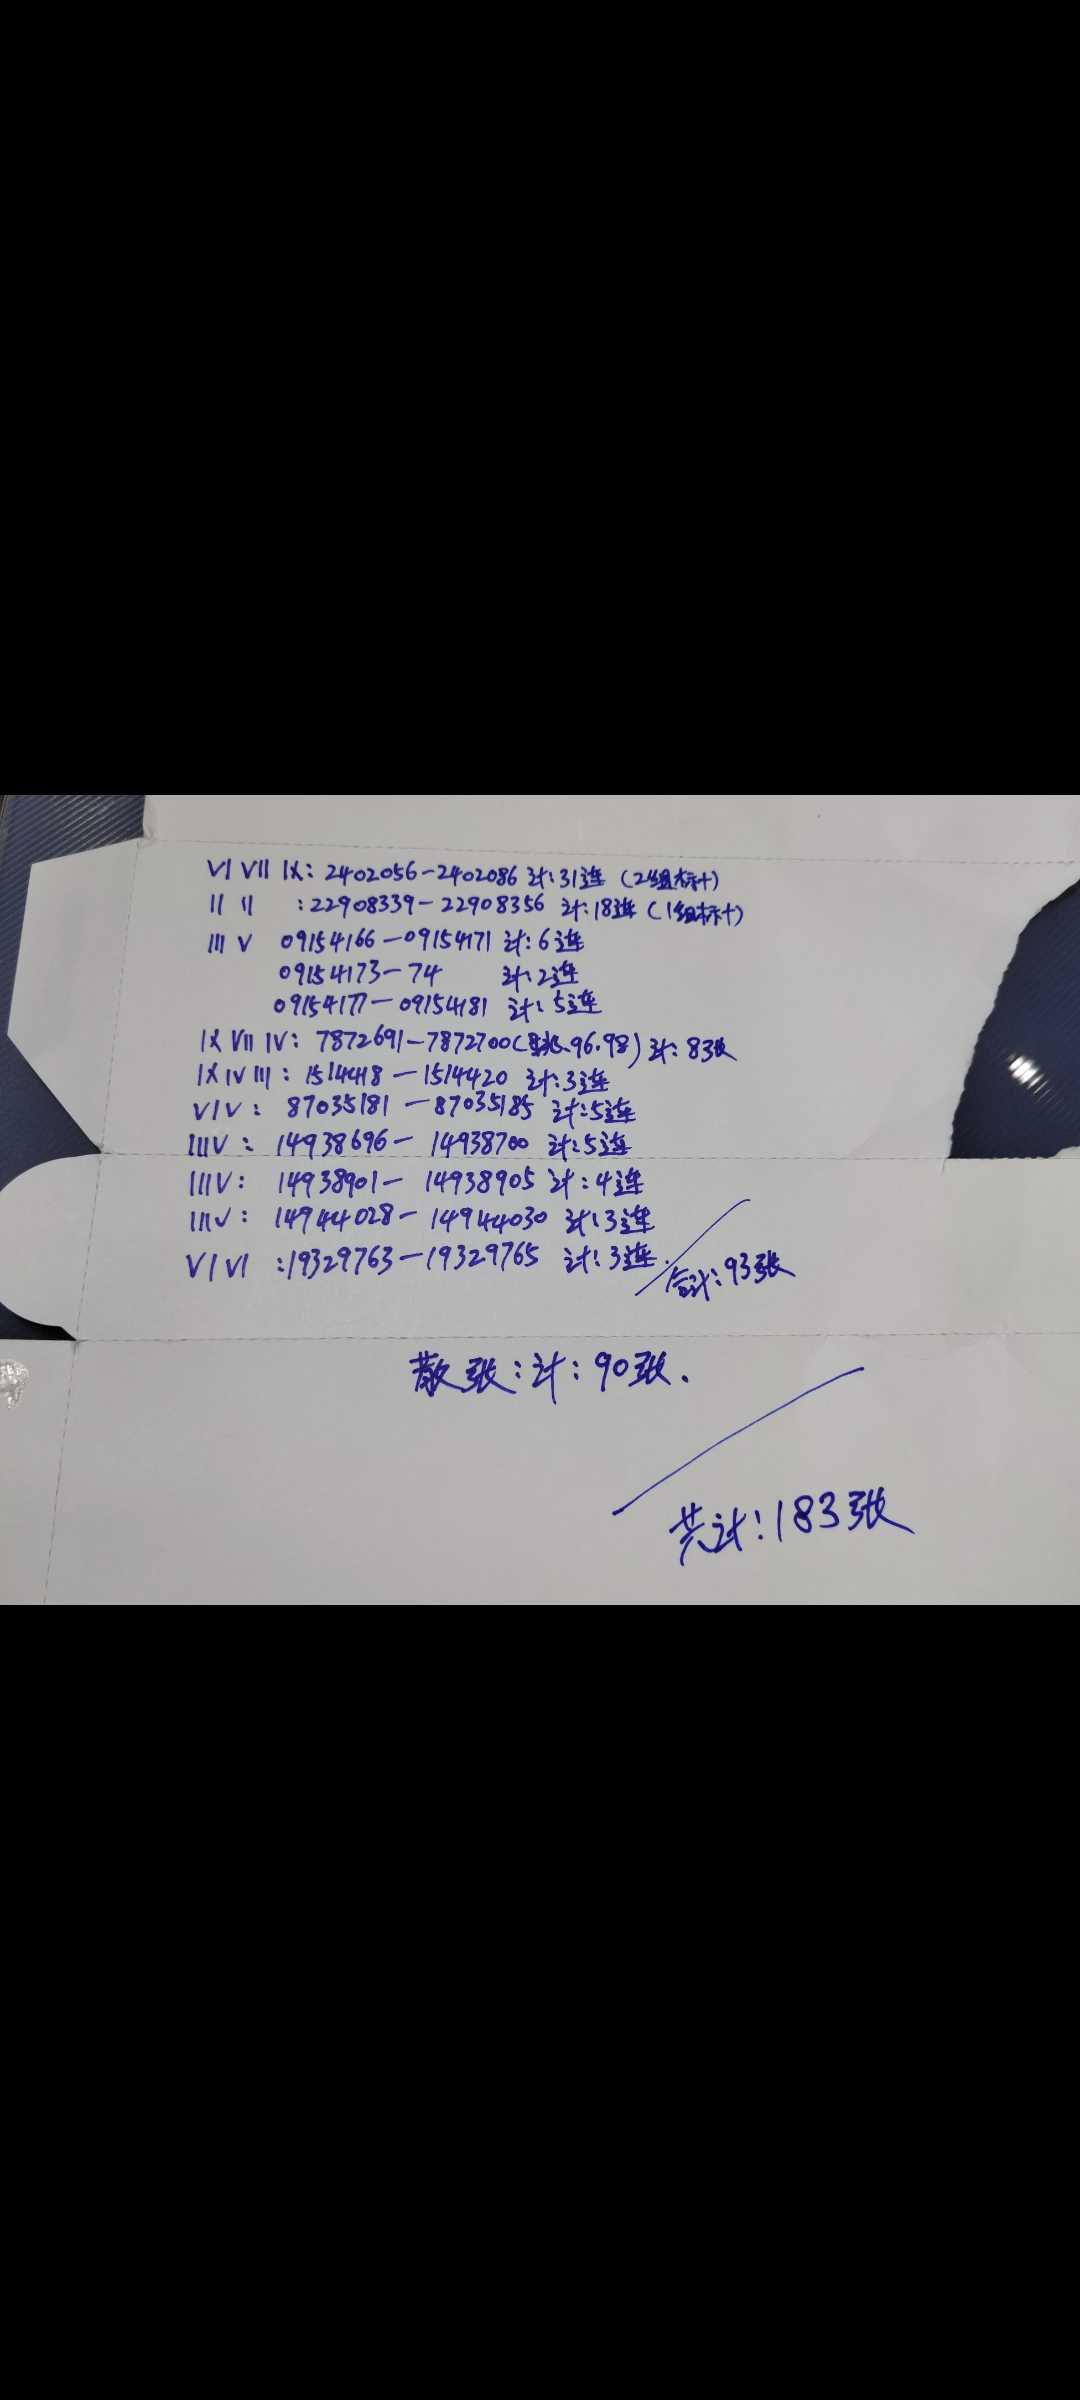 VI VII IX: 2402056-2402086 计:31连 (2组标十)
II II :22908339-22908356 计:18连 (1组标十)
III V 09154166-09154171 计:6连
09154173-74 计:2连
09154177-09154181 计:5连
IX VII IV: 7872691-7872700(跳.96.98) 计:8张
IX IV III: 1514418-1514420 计:3连
VI V: 87035181-87035185 计:5连
III V: 14938696-14938700 计:5连
III V: 14938901-14938905 计:4连
III V: 14944028-14944030 计:3连
VI VI :19329763-19329765 计:3连.
合计:93张
散张:计:90张.
共计:183张